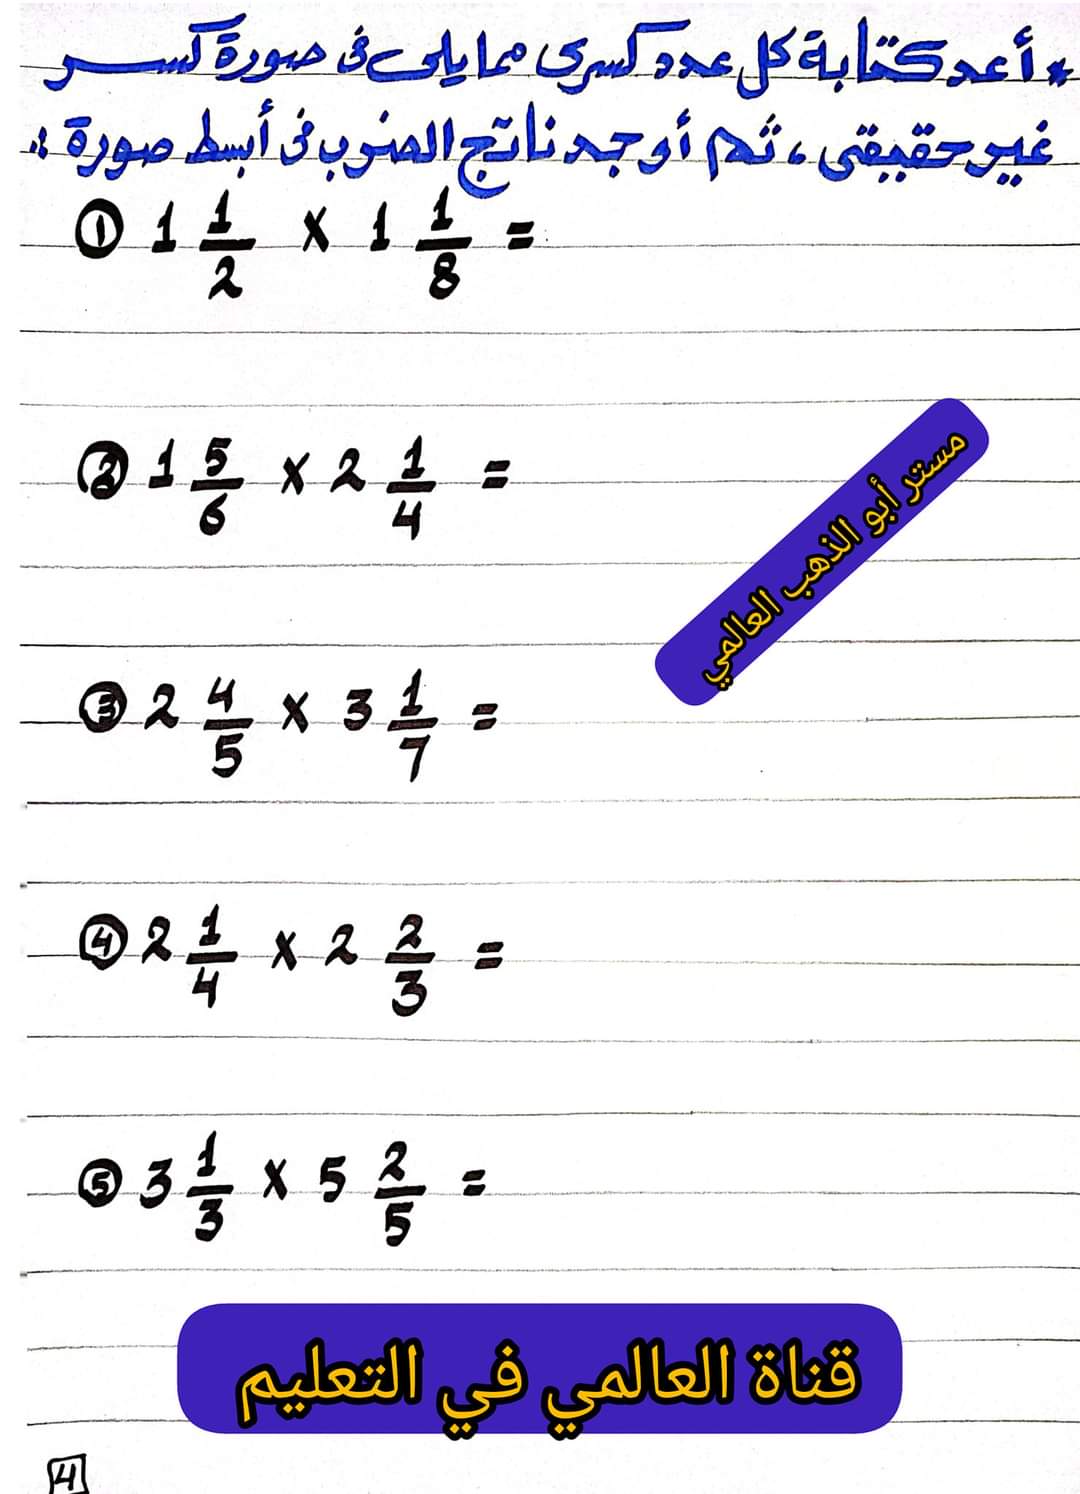 * أعد كتابة كل عدد كسرى مما يلى فى صورة كسر
غير حقيقى، ثم أوجد ناتج الضرب فى أبسط صورة :
① 1 1/2 x 1 1/8 =
② 1 5/6 x 2 1/4 =
مستر أبو الذهب العالمي
③ 2 4/5 x 3 1/7 =
④ 2 1/4 x 2 2/3 =
⑤ 3 1/3 x 5 2/5 =
قناة العالمي في التعليم
4